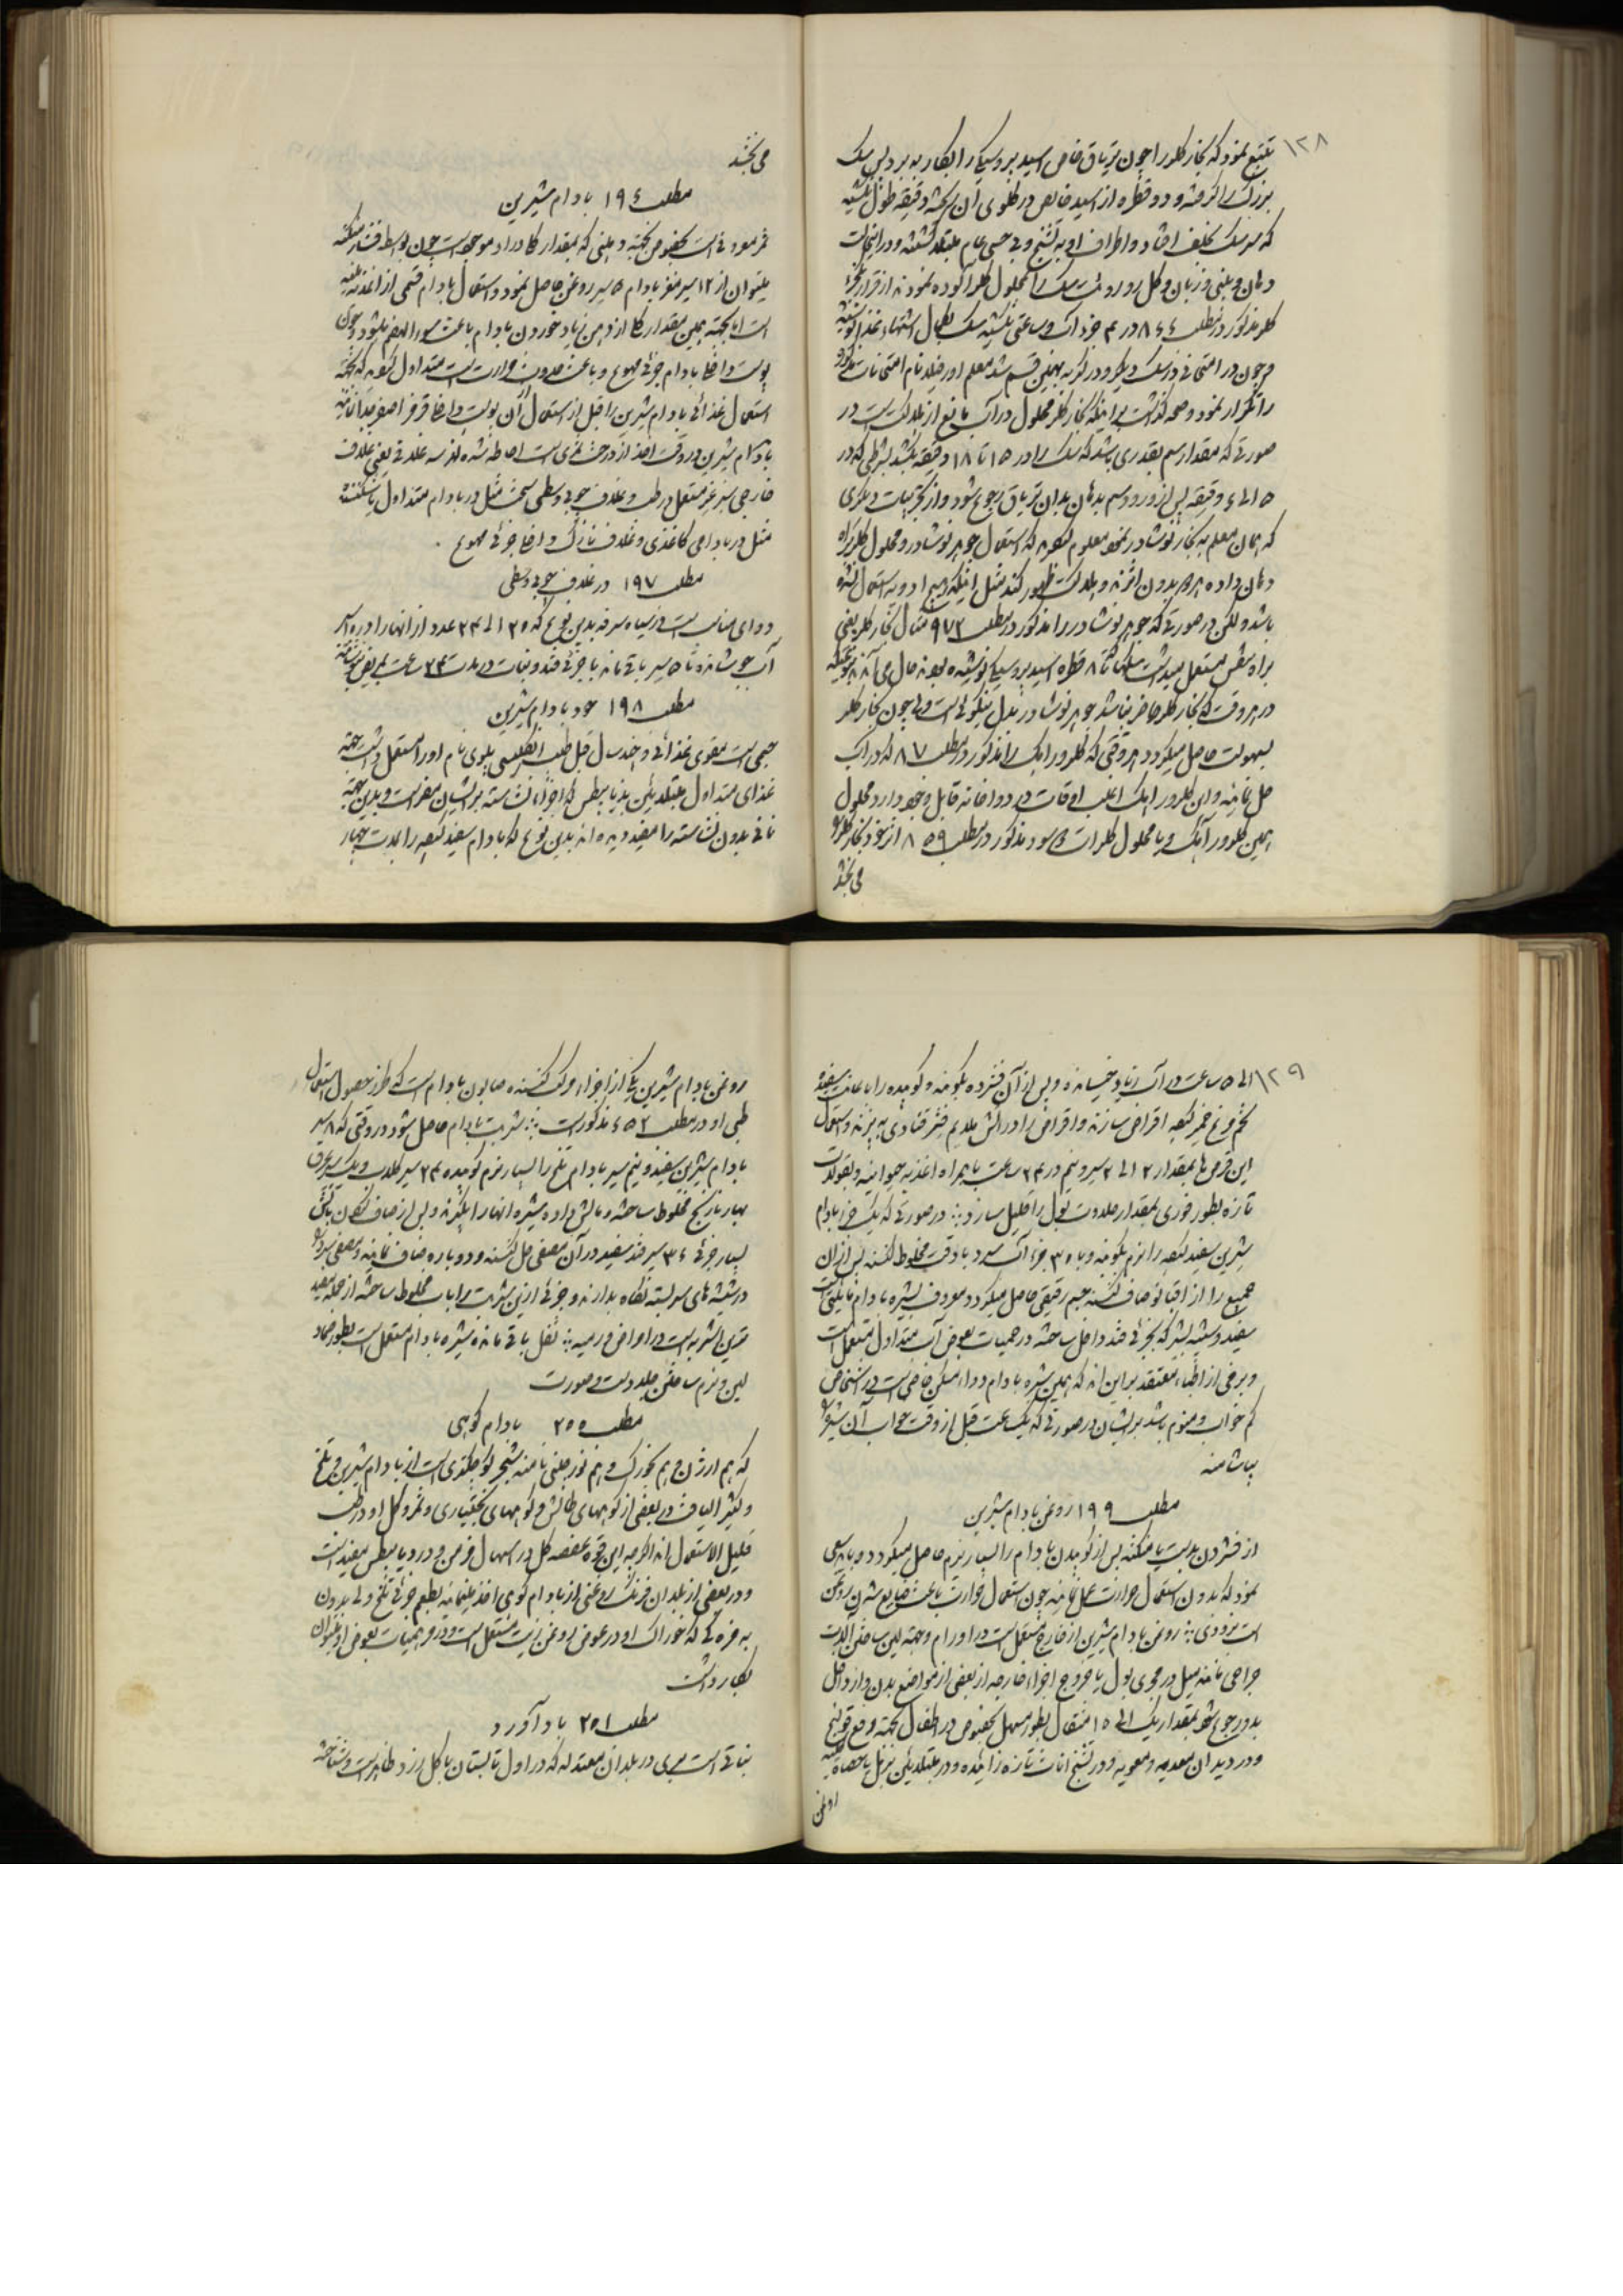 ۱۲۸
تتبع نمود که بخار کلور را چون تریاق خاص اسید پروسیک بکار برد پس سک
بزرک را کرفته و دو قطره از اسید خالص در کلوی آن ریخته دقیقه طول نکشید
که سر سک بخلف افتاد و اطراف او به تشنج و بی حسی عام مبتلا کشتند و در اینحالت
دهان و بینی و زبان و کل رو را بمحلول کلر آلوده نمودند از قرار
کلر مذکور در مطلب ۸٤٤ در ۴ جزء آب و ساعتی نکشید سک بکمال اشتهاء غذا
و چون در امتحانی در سک دیکر و در کربه بهمین قسم شد معلم اورفیلا نام امتحانات
را تکرار نمود و صحه کذاشت بر اینکه بخار کلر محلول در آب مانع از هلاکت است در
صورتی که مقدار سم بقدری باشد که سک را در ۱۵ تا ۱۸ دقیقه بکشد بشرطی که در
۵ الی ٤ دقیقه پس از ورود سم بدهان بدان تریاق رجوع شود و از تجربیات دیکری
که همان معلم به بخار نوشادر نمود معلوم کرد که استعمال جوهر نوشادر و محلول کلر براه
دهان داده بدون اثرند و هلاکت ظهور کند مثل اینکه هیچ ادویه استعمال نشده
باشد و لکن در صورتی که جوهر نوشادر را مذکور در مطلب ۹۷۲ مثال بخار کلر یعنی
براه تنفس مستعمل میداشت سکها تا ۸ قطره اسید پروسیک نوشیده بودند حال می آمدند
در هر وقت که بخار کلر حاضر نباشد جوهر نوشادر بدل نیکوئی است ولی چون بخار کلر
بسهولت حاصل میکردد هر وقتی که کلرور اهک را مذکور در مطلب ۸۷ که در آب
حل نمایند و این کلرور اهک اغلب اوقات در دواخانه قابل وجود دارد محلول
همین کلرور آهک و یا محلول کلرات سود مذکور در مطلب ۸۵۹ از خود بخار کلر
می بخشد
می بخشد
مطلب ۱۹٤ بادام شیرین
ثمر معروفی است بخصوص بجهة دهنی که بمقدار کلا در او موجود است چون بواسطه فشار منکنه
میتوان از ۱۲ سیر مغز بادام ۵ سیر روغن حاصل نمود و استعمال بادام قسمی از اغذیه
است اما بجهة همین مقدار کلا از دهن زیاد خوردن بادام باعث سوء الهضم میشود و چون
پوست داخل بادام جزئی مهوع و باعث حدوث حرارت است متداول کشته که بجهة
استعمال غذائی بادام شیرین را قبل از استعمال از آن پوست داخل قرمز اصفر
بادام شیرین در وقت اخذ از درخت ثمری است احاطه شده بسه غلاف یعنی غلاف
خارجی سبز غیر مستعمل در طب و غلاف چوبی وسطی سخت مثل در بادام متداول یا شکننده
مثل در بادام کاغذی و غلاف نازک داخل جزئی مهوع .
مطلب ۱۹۷ در غلاف چوبی وسطی
دوای مناسبی است در سیاه سرفه بدین نوع که ۲۰ الی ۲۴ عدد از انها را در ۱۰ سیر
آب جوشانند تا ۵ سیر باقی ماند با جزئی قند و نبات در مدت ۲۴ ساعت بمریض نوشانند
مطلب ۱۹۸ خود بادام شیرین
جسمی است مقوی غذائی و چند سال قبل طبیب انکلیسی پلوی نام او را مستعمل داشت بجهة
غذای متداول مبتلایان بذیابیطس که اجزاء نشاسته بر ایشان مضر است و بدین جهة
نانی بدون نشاسته را میفرمودند بدین نوع که بادام سفید کرده را بمدت چهار
۱۲۹
الی ۵ ساعت در آب زیاد خیسانده و پس از آن فشرده بکوبند و کوبیده را باعانت سفیده
تخم مرغ خمیر کرده اقراص سازند و اقراص را در آتش ملایم قنادی به پزند و استعمال
این قرصها بمقدار ۲ الی ۳ سیر و نیم در ۲۴ ساعت بهمراه اغذیه حیوانیه و بقولات
تازه بطور فوری بمقدار حلاوت بول را قلیل سازد : در صورتی که یک جزء بادام
شیرین سفید کرده را نرم بکوبند و با ۳۰ جزء آب سرد با دقت مخلوط کنند پس از آن
جمیع را از پاتو صاف کنند جسم رقیقی حاصل میکردد معروف بشیره بادام مایعی است
سفید و شبیه بشیر که بجزئی قند داخل ساخته در حمیات بعوض آب متداول مستعمل است
و برخی از اطباء معتقد بر این اند که همین شیره بادام دوا مسکن خاصی است در اشخاص
کم خواب و منوم باشد بر ایشان در صورتی که یکساعت قبل از وقت خواب آن شیره را
بیاشامند
مطلب ۱۹۹ روغن بادام شیرین
از فشردن بدست یا منکنه پس از کوبیدن بادام را بسیار نرم حاصل میکردد و باید سعی
نمود که بدون استعمال حرارت عمل نمایند چون استعمال حرارت باعث ضایع شدن روغن
است بزودی : روغن بادام شیرین از خارج مستعمل است در اورام و بجهة لین ساختن آلات
جراحی مانند میل در مجری بول یا خروج اجزاء خارجه از بعضی از مواضع بدن و از داخل
بدو رجوع شود بمقدار یک الی ۱۵ مثقال بطور مسهل بخصوص در اطفال بجهة رفع قولنج
و در دیدان معدیه و معویه و در تشنج اناث تازه زائیده و در مبتلایان برمل یا حصاة
روغن
روغن بادام شیرین یکی از اجزاء مرکب کننده صابون بادام است که طرز حصول و استعمال
طبی او در مطلب ٤۵۲ مذکور است : شربت بادام حاصل شود در وقتی که ۸ سیر
بادام شیرین سفید و نیم سیر بادام تلخ را بسیار نرم کوبیده ۲۴ سیر کلاب و یک سیر عرق
بهار نارنج مخلوط ساخته و مالش داده شیره انها را بکیرند و پس از صاف کردن با تانی
بسیار جزئی ۳٤ سیر قند سفید در آن مصفی حل کنند و دوباره صاف نمایند و مصفی سرد را
در شیشه های سر بسته نکاه بدارند و جزئی از این شربت را با آب مخلوط ساخته از جمله مفید
ترین اشربه است در امراض ورمیه : ثفل باقی مانده شیره بادام مستعمل است بطور ضماد
لین و نرم ساختن جلد دست و صورت
مطلب ۲۰۰ بادام کوهی
که هم ارژن و هم بخورک و هم لوز جبلی نامند شجر کوچکتری است از بادام شیرین و تلخ
و کثیر الیاف در بعضی از کوههای طالش و کوههای بختیاری و ثمر و کل او در طب
قلیل الاستعمال اند اکرچه این قوه عفصه کل در اسهال مزمن و در ذیابیطس مفید است
و در بعضی از بلدان فرنک روغنی از بادام کوهی اخذ مینمایند بطعم جزئی تلخ ولی بدون
بد مزه کی که خوراک او در عوض روغن زیت مستعمل است و در مرهمیات بعوض او میتوان
بکار داشت
مطلب ۲۰۱ بادآورد
نباتی است بری در بلدان معتدله که در اول تابستان با کل زرد ظاهر است و شناخته